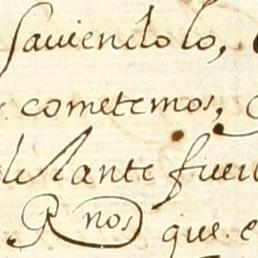 saviendolo,
cometemos,
delante fuer
nos que e